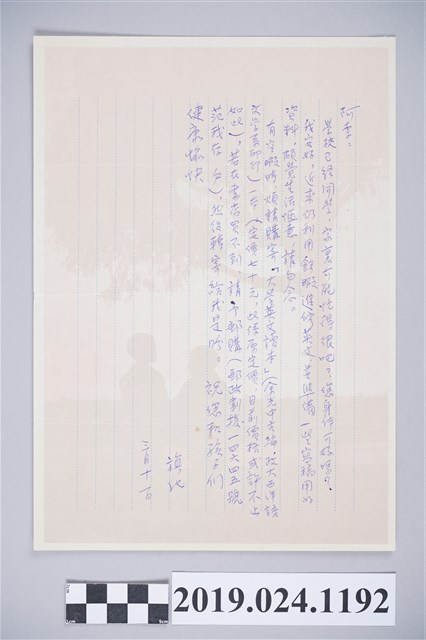 阿季：
學校已經開學，家裏可能忙得很吧？您身体可好嗎？
我安好，近來仍利用餘暇進修英文，並準備一些寫稿用的
資料，頗覺生活愜意，請勿念。
有空暇時，煩請購寄「大學英文讀本」（余光中主編，政大西洋語
文學系印行）一本（定價七十元，此係原定價，目前價格或許不止
如此），若在書店買不到，請 郵購（郵政劃撥一四六四五號
范我存 ），然後轉寄給我是盼。祝您和孩子們
健康愉快
三月十一日
2019.024.1192